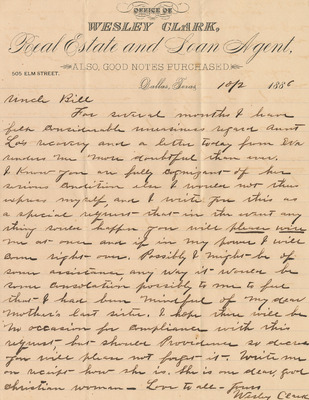 OFFICE OF
WESLEY CLARK,
Real Estate and Loan Agent,
ALSO, GOOD NOTES PURCHASED.
505 ELM STREET.
Dallas, Texas 10/2 1886
Uncle Bill
For several months I have
felt considerable uneasiness regard Aunt
Lo's recovery and a letter today from Eva
renders me more doubtful than ever.
I know you are fully cognizant of her
serious condition else I would not thus
express myself, and I write you this as
a special request that in the event any
thing could happen you will please wire
me at once and if in my power I will
come right on. Possibly I might be of
some assistance, any way it would be
some consolation possibly to me to feel
that I had been mindful of my dear
mother's last sister. I hope there will be
no occasion for compliance with this
request, but should Providence so decree
you will please not forget it - Write me
on receipt how she is. She is one dear, good
christian woman - Love to all - Yours
Wesley Clark